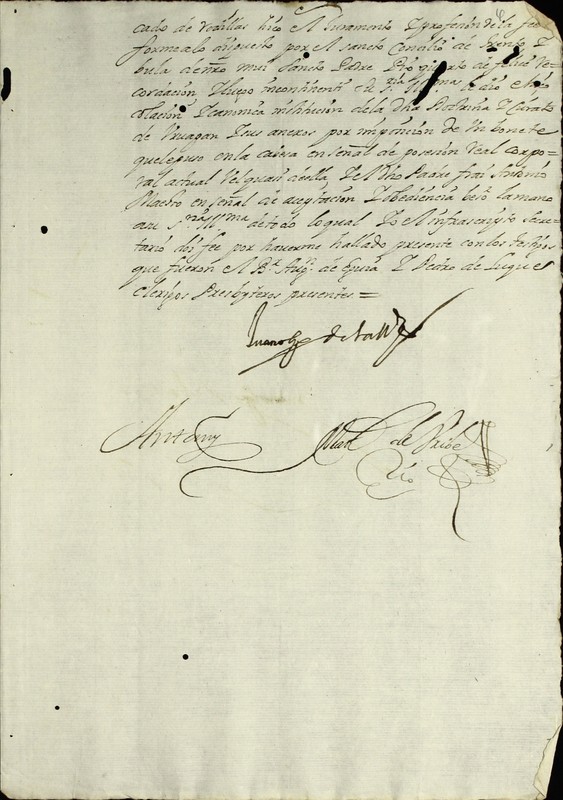 cado de rodillas hiço el Juramento y profesion de la fee
forme a lo dispuesto por el sancto Concilio de Trento y
bula de nro mui Sancto Padre Pio quarto de felice Re
cordacion y luego incontinenti su Sª Yllma le dio e hiço
colacion y canonica institucion de la dha Doctrina y Curato
de Uruapan y sus anexos por imposicion de un bonete
que le puso en la cavesa en señal de posesion Real corpo
ral actual vel quasi de ella, y el dho Padre frai Antonio
Maestro en señal de aceptacion y obediencia besó la mano
a su Sª Yllma de todo lo qual yo el infrascripto secre
tario doi fee por haverme hallado presente con los testigos
que fueron el Br Augn de y Pedro de
clerigos Presbyteros presentes =
Antony